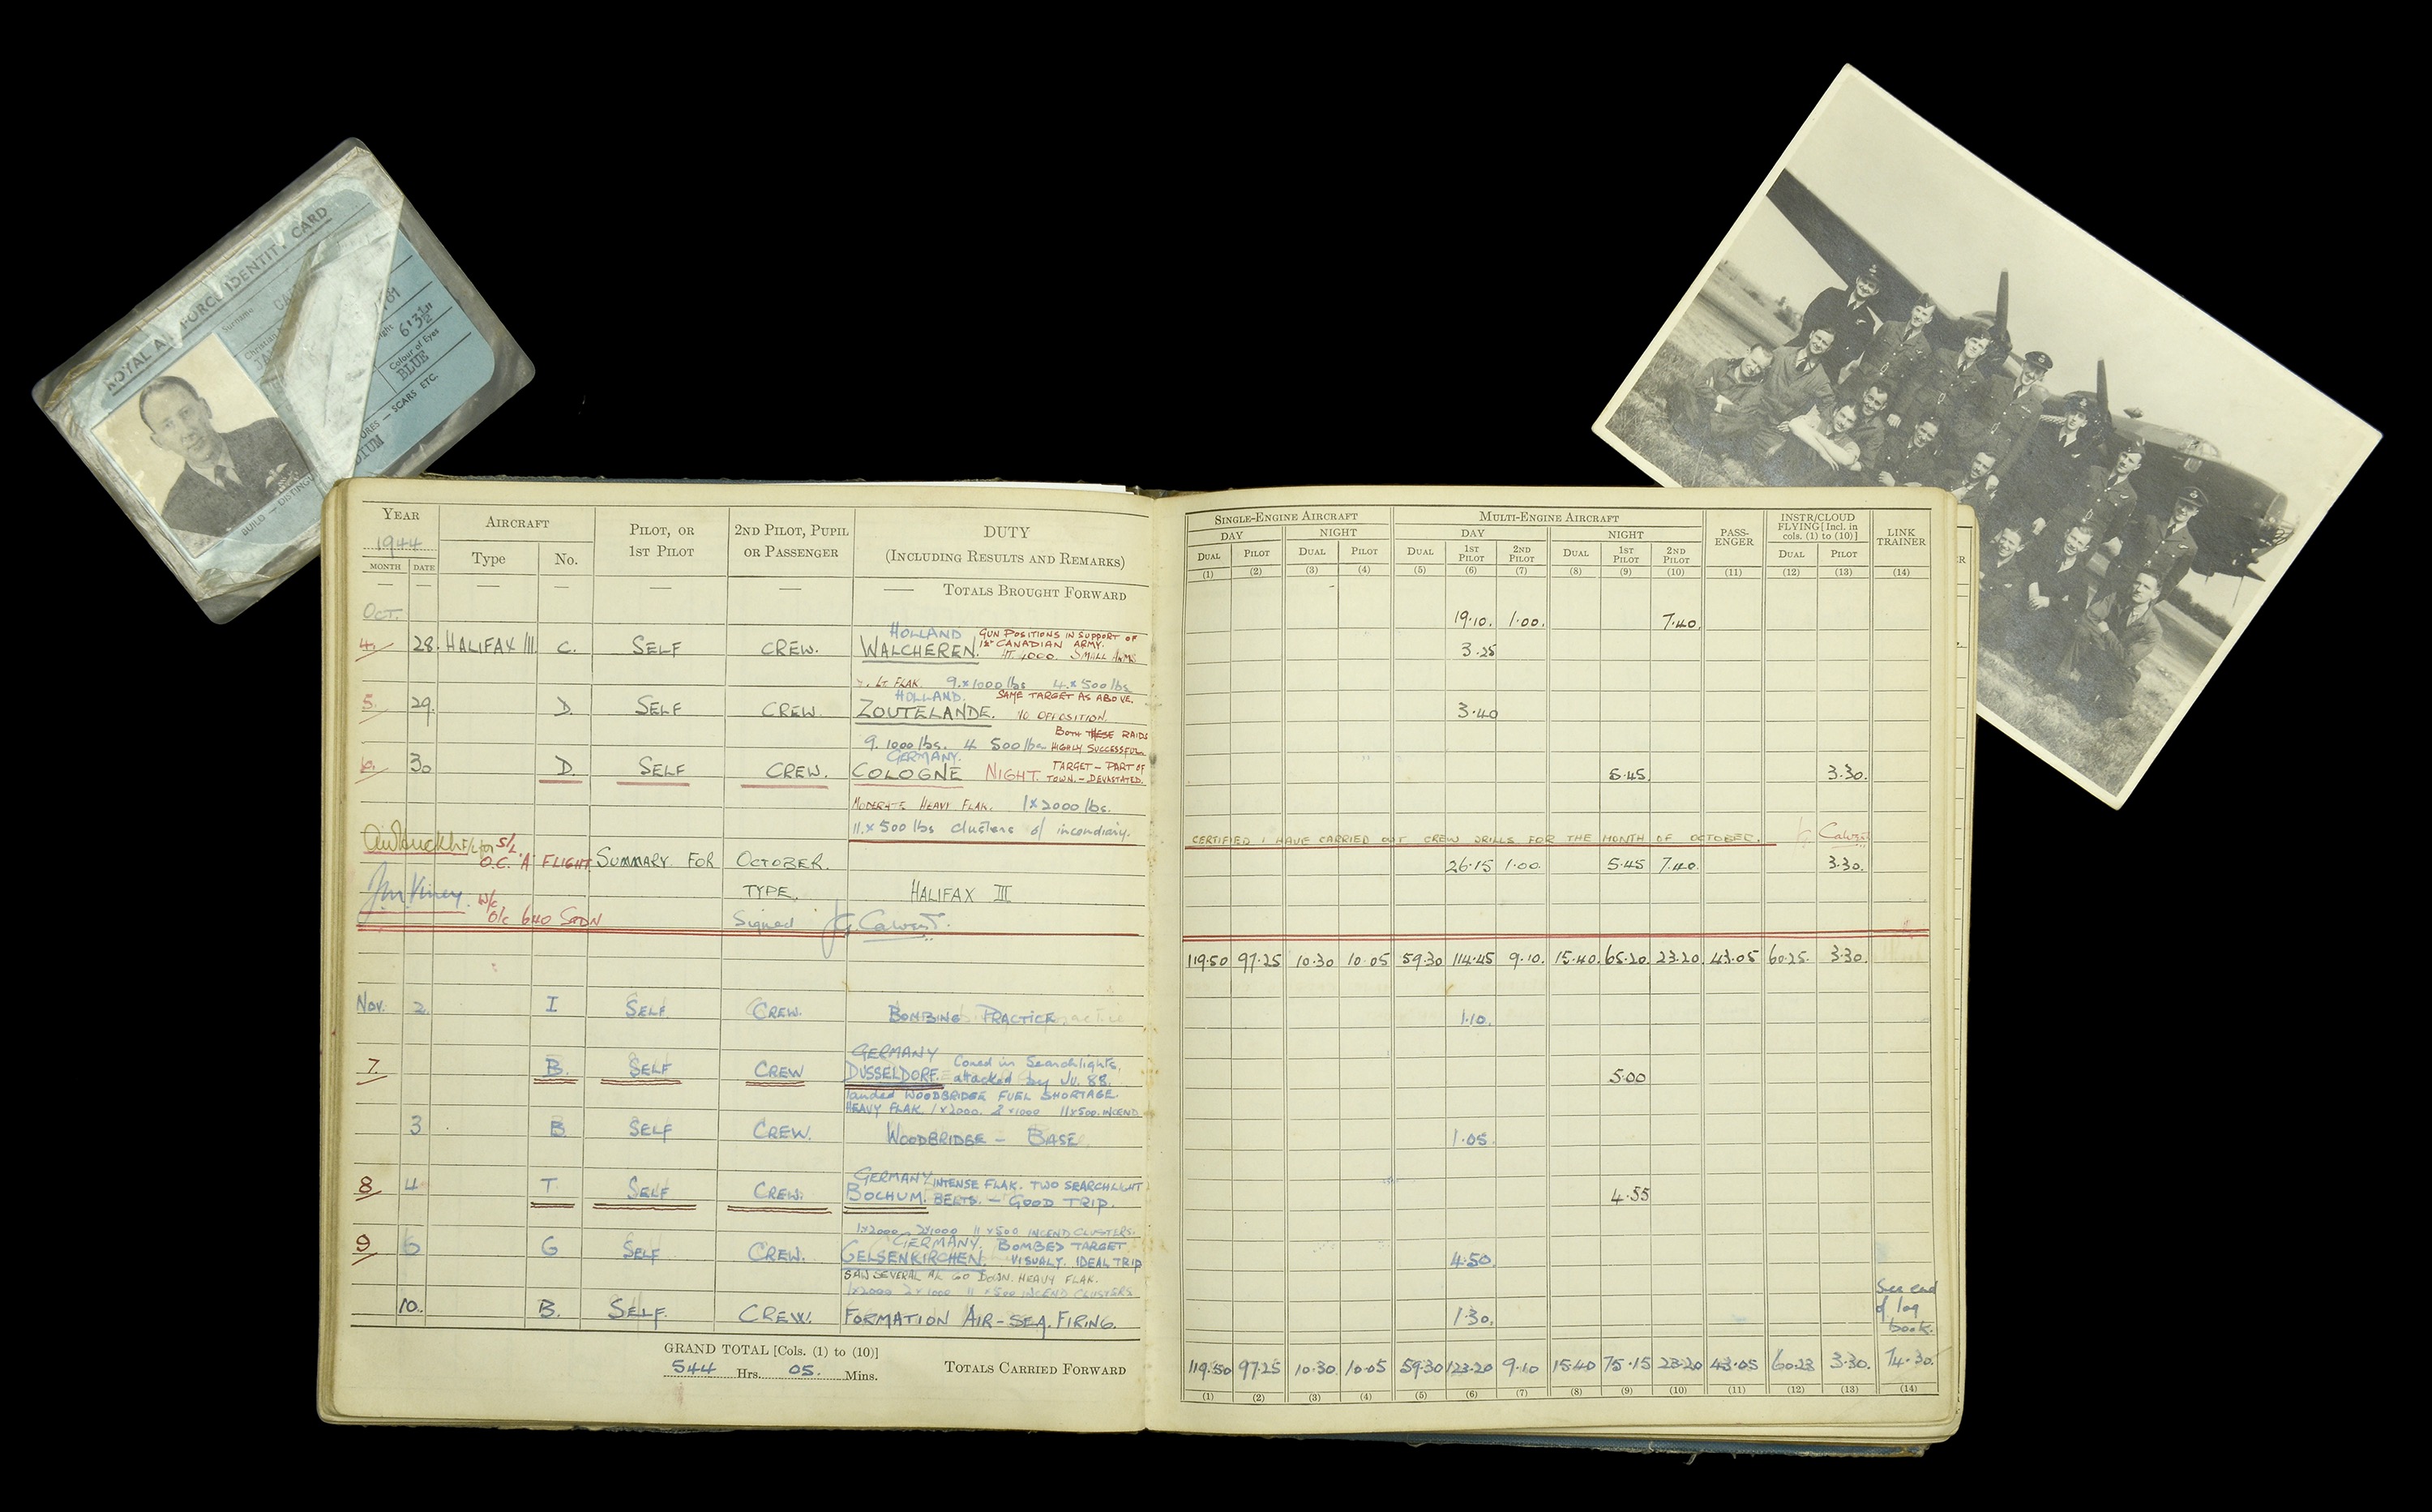 ROYAL A FORCE IDENTITY CARD
Surname
Christian
6'3½"
Colour of Eyes
BLUE
BUILD — DISTINGU URES — SCARS ETC.
DIUM
YEAR
1944
MONTH DATE
AIRCRAFT
Type No.
PILOT, OR
1ST PILOT
2ND PILOT, PUPIL
OR PASSENGER
DUTY
(INCLUDING RESULTS AND REMARKS)
— — — — — — — TOTALS BROUGHT FORWARD
OCT.
4. 28. HALIFAX III C. SELF CREW. HOLLAND
WALCHEREN. GUN POSITIONS IN SUPPORT OF
1ST CANADIAN ARMY.
HT 1000. SMALL ARMS
LT FLAK. 9.×1000 lbs 4.×500 lbs
5. 29. D. SELF CREW. HOLLAND. SAME TARGET AS ABOVE.
ZOUTELANDE. NO OPPOSITION.
9. 1000 lbs. 4 500 lbs BOTH THESE RAIDS
HIGHLY SUCCESSFUL
6. 30 D. SELF CREW. GERMANY.
COLOGNE NIGHT. TARGET – PART OF
TOWN. – DEVASTATED.
MODERATE HEAVY FLAK. 1×2000 lbs.
11.×500 lbs clusters of incendiary.
F/L for S/L
O.C. 'A' FLIGHT. SUMMARY FOR OCTOBER.
TYPE. HALIFAX III
W/C
O/C 640 SQDN
Signed
Nov. 2. I SELF CREW. BOMBING PRACTICE
7. B. SELF CREW GERMANY
DUSSELDORF. Coned in Searchlights,
attacked by JU. 88.
landed WOODBRIDGE FUEL SHORTAGE.
HEAVY FLAK. 1×2000. 2×1000 11×500. INCEND
3 B SELF CREW. WOODBRIDGE – BASE
8 4 T. SELF CREW. GERMANY
BOCHUM. INTENSE FLAK. TWO SEARCHLIGHT
BELTS. – GOOD TRIP.
1×2000 2×1000 11×500 INCEND CLUSTERS.
9 6 G SELF CREW. GERMANY. BOMBED TARGET
GELSENKIRCHEN. VISUALY. IDEAL TRIP
SAW SEVERAL A/C GO DOWN. HEAVY FLAK.
1×2000 2×1000 11×500 INCEND CLUSTERS
10. B. SELF. CREW. FORMATION AIR-SEA. FIRING.
GRAND TOTAL [Cols. (1) to (10)]
544 Hrs. 05. Mins.
TOTALS CARRIED FORWARD
SINGLE-ENGINE AIRCRAFT MULTI-ENGINE AIRCRAFT PASS-
ENGER INSTR/CLOUD
FLYING [Incl. in
cols. (1) to (10)] LINK
TRAINER
DAY NIGHT DAY NIGHT
DUAL PILOT DUAL PILOT DUAL 1ST
PILOT 2ND
PILOT DUAL 1ST
PILOT 2ND
PILOT DUAL PILOT
(1) (2) (3) (4) (5) (6) (7) (8) (9) (10) (11) (12) (13) (14)
19.10. 1.00. 7.40.
3.25
3.40
5.45. 3.30.
CERTIFIED I HAVE CARRIED OUT CREW DRILLS FOR THE MONTH OF OCTOBER.
26.15 1.00. 5.45 7.40. 3.30.
119.50 97.25 10.30 10.05 59.30 114.45 9.10. 15.40. 65.20 23.20. 43.05 60.25. 3.30.
1.10.
5.00
1.05.
4.55
4.50.
1.30.
See end
of log
book.
119.50 97.25 10.30. 10.05 59.30 123.20 9.10 15.40 75.15 23.20 43.05 60.25 3.30. 74.30.
(1) (2) (3) (4) (5) (6) (7) (8) (9) (10) (11) (12) (13) (14)